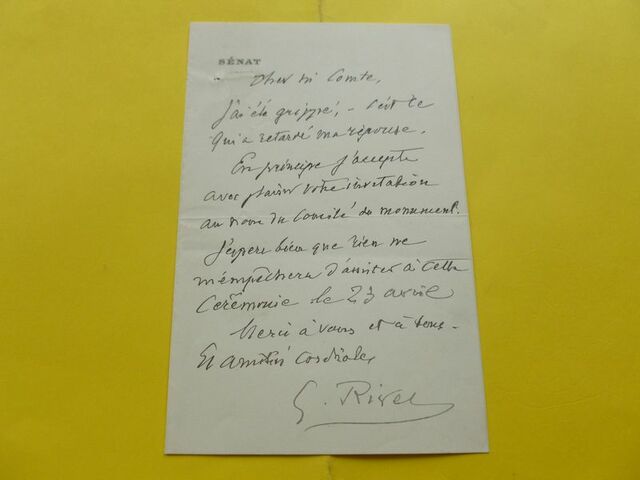 SÉNAT
Cher M. Comte,
J'ai été grippé, – c'est ce
qui a retardé ma réponse.
En principe j'accepte
avec plaisir votre invitation
au nom du Comité du monument.
J'espère bien que rien ne
m'empêchera d'assister à cette
Cérémonie le 23 avril
Merci à vous et à tous –
Et amitiés cordiales
G. Rivet